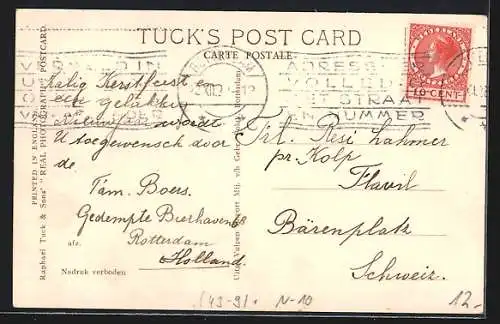 TUCK'S POST CARD
CARTE POSTALE
PRINTED IN ENGLAND
Raphael Tuck & Sons' "REAL PHOTOGRAPH" POSTCARD
NEDERLAND
10 CENT
VOLLEDIG
STRAAT
EN NUMMER
Zalig Kerstfeest en
een gelukkig
nieuwjaar wordt
U toegewensch door
de
Fam. Boers.
Gedempte Bierhaven 68
afz. Rotterdam
Holland.
Nadruk verboden
Frl. Resi Lahmer
pr. Kolp
Flavil
Bärenplatz
Schweiz.
(43-9).
N-10
12.-